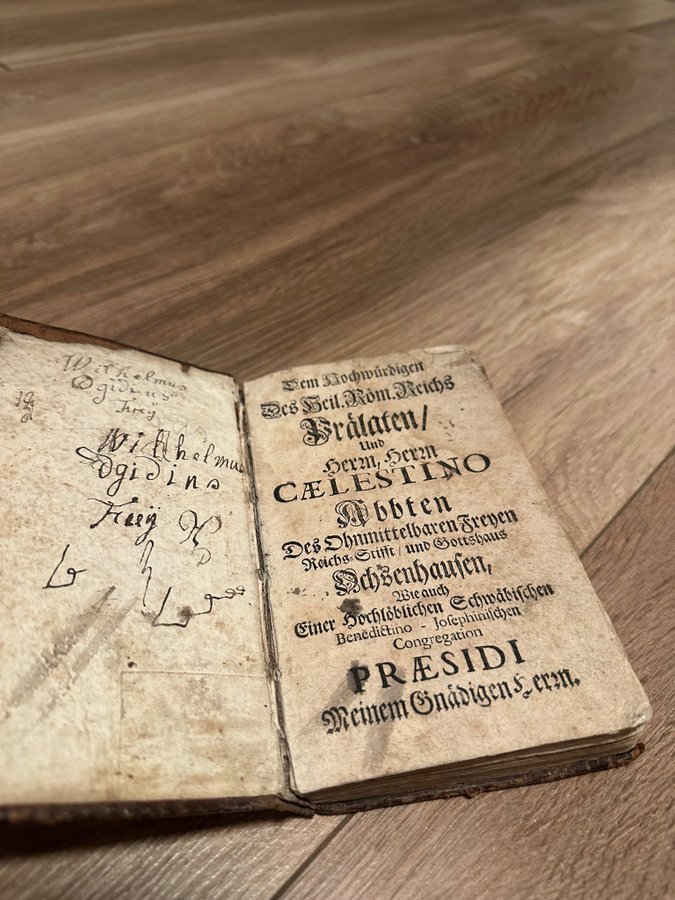 Wilhelmus
Frey
Wilhelmus
Frey
Dem Hochwürdigen
Des Heil. Röm. Reichs
Prälaten/
Und
Herrn, Herrn
CÆLESTINO
Abbten
Des Ohnmittelbaren Freyen
Reichs-Stifft/ und Gottshaus
Ochsenhausen,
Wie auch
Einer Hochlöblichen Schwäbischen
Benedictino - Josephinischen
Congregation
PRÆSIDI
Meinem Gnädigen Herrn.